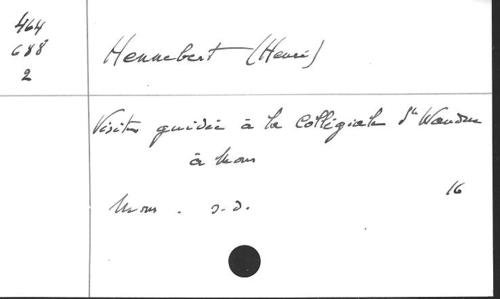 464
688
2
Hennebert (Henri)
Visite guidée à la Collégiale Ste Waudru
à Mons
16
Mons . s.d.